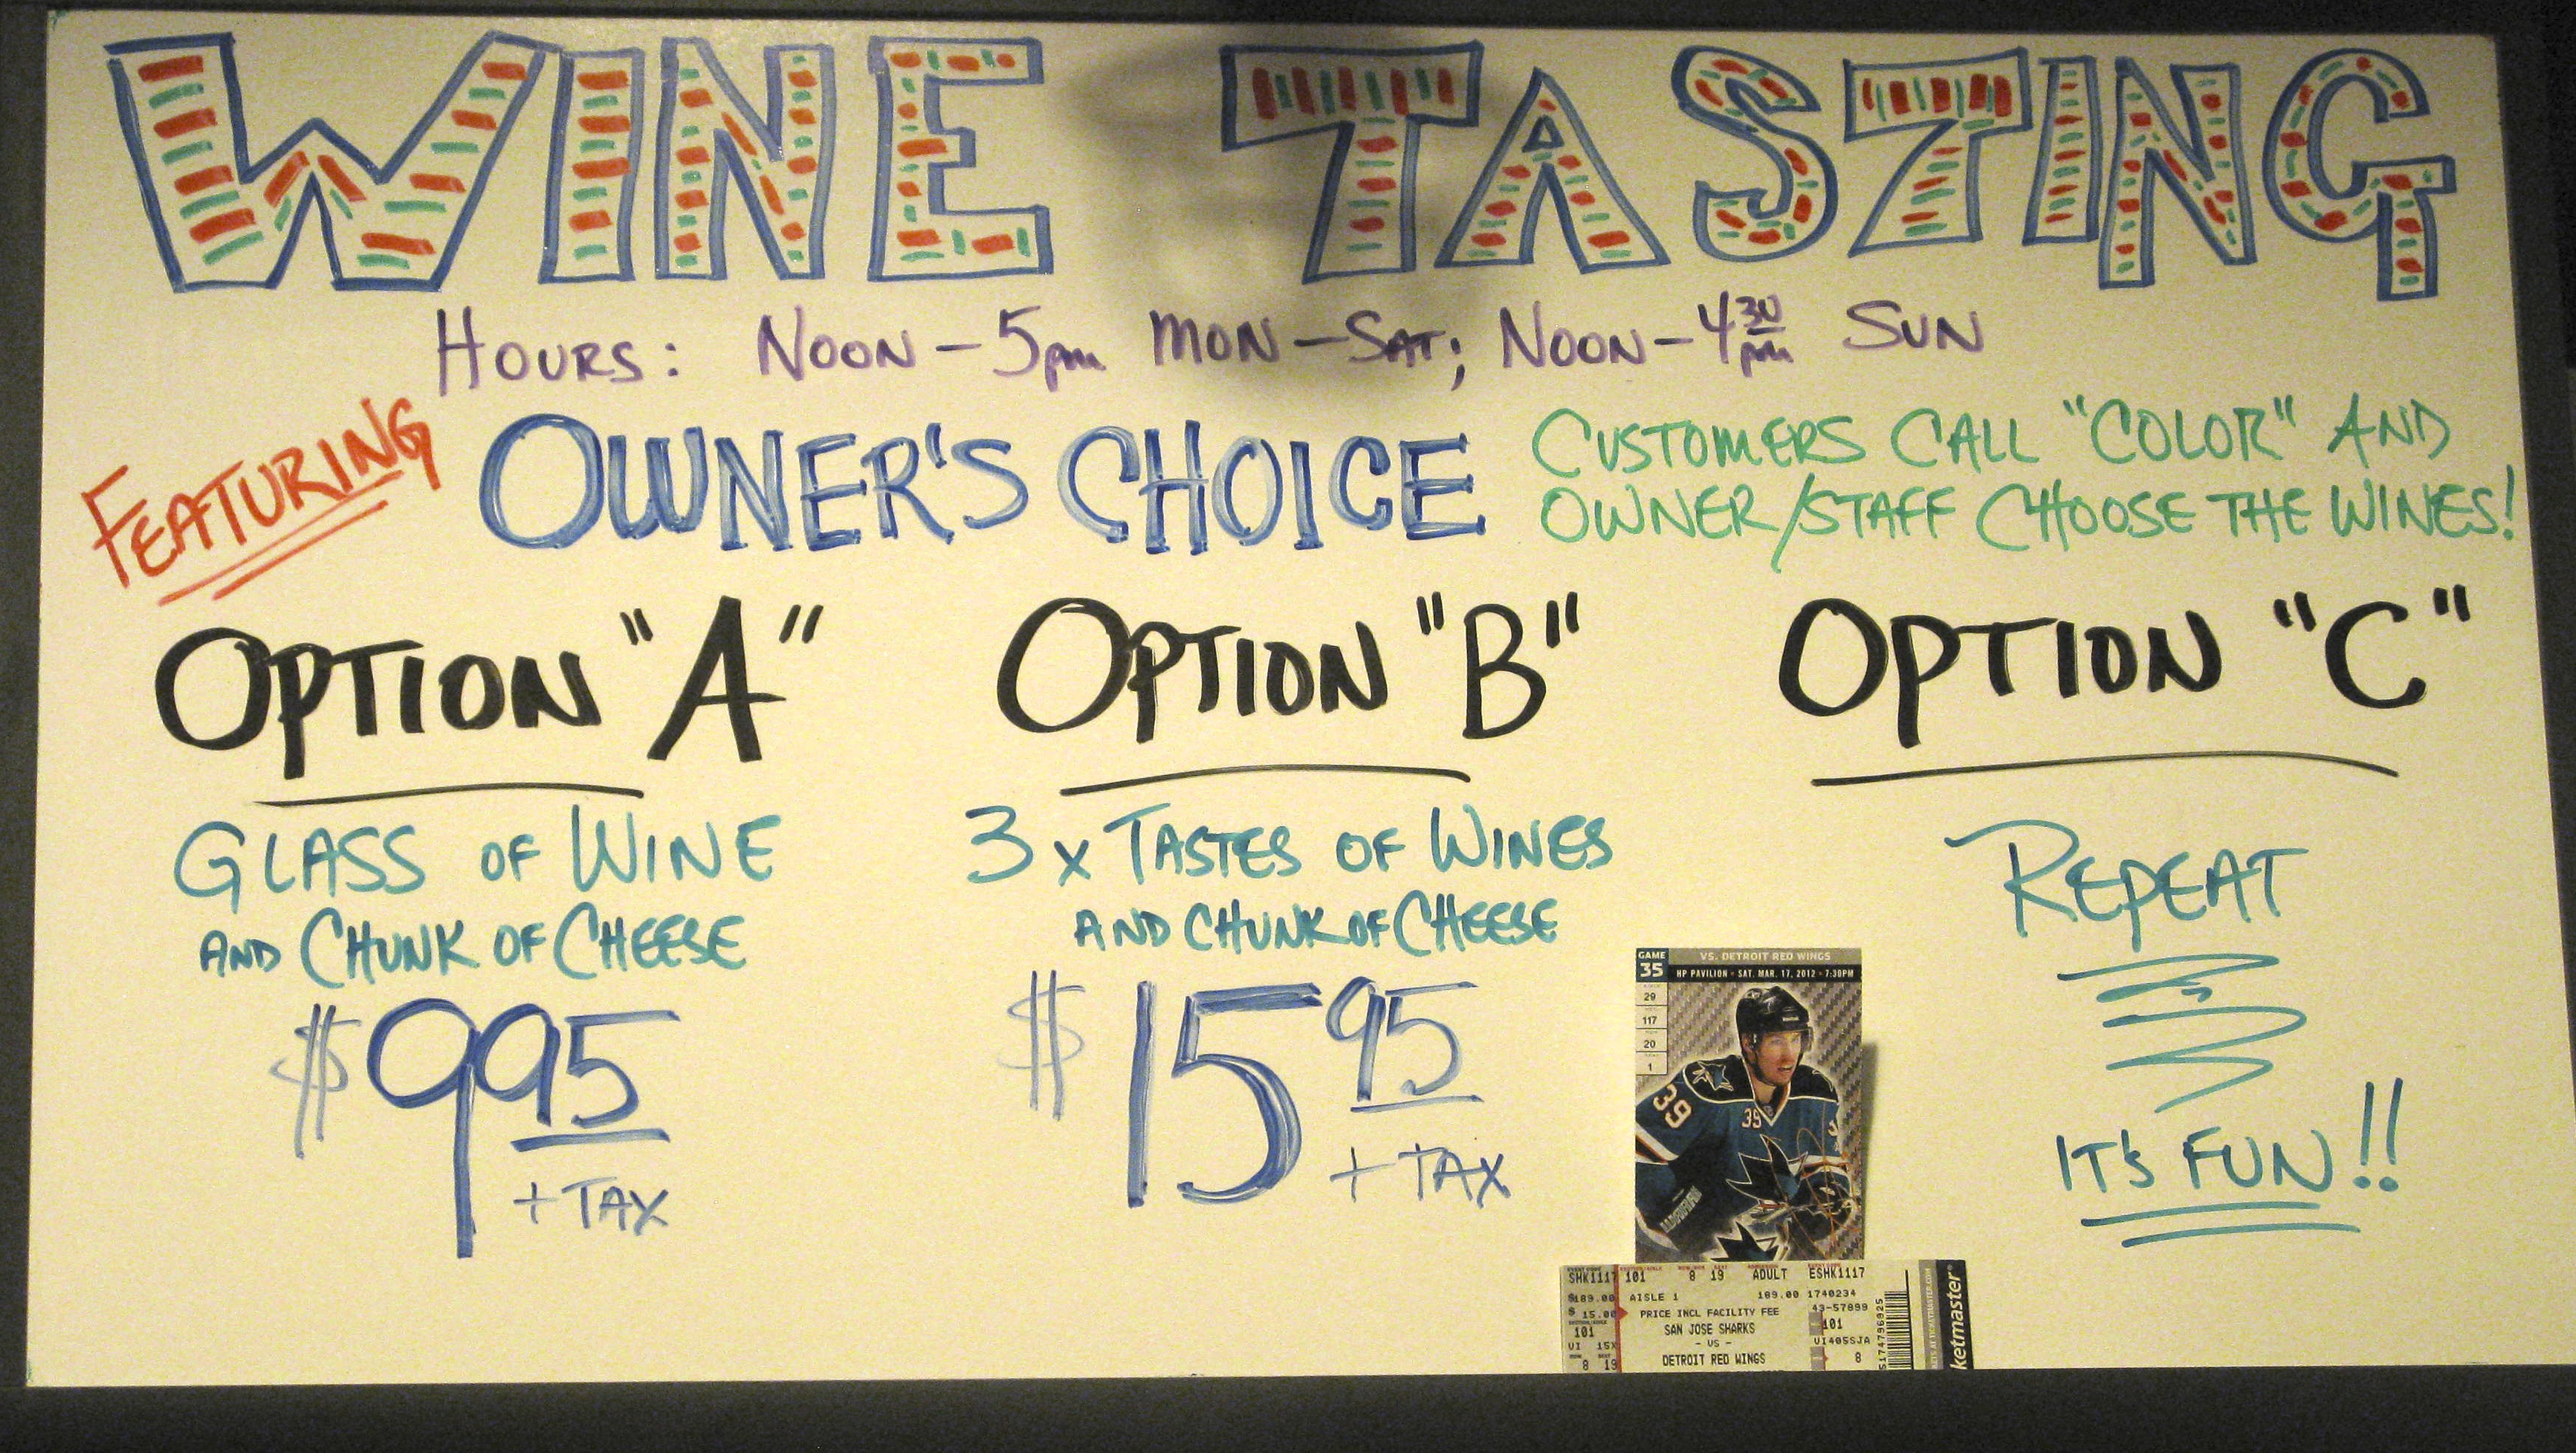 WINE TASTING
HOURS: NOON - 5pm MON - SAT; NOON - 4 30 pm SUN
FEATURING
OWNER'S CHOICE
CUSTOMERS CALL "COLOR" AND
OWNER/STAFF CHOOSE THE WINES!
OPTION "A"
GLASS OF WINE
AND CHUNK OF CHEESE
$9 95
+ TAX
OPTION "B"
3 x TASTES OF WINES
AND CHUNK OF CHEESE
$15 95
+ TAX
OPTION "C"
REPEAT
IT'S FUN!!
GAME
35
VS. DETROIT RED WINGS
HP PAVILION • SAT. MAR. 17, 2012 • 7:30PM
29
117
20
1
39
39
SHK1117 101 8 19 ADULT ESHK1117
$189.00 AISLE 1 189.00 1740234
$ 15.00 PRICE INCL FACILITY FEE 43-57899
101 SAN JOSE SHARKS 101
VI 15X - VS - VI405SJA
8 19 DETROIT RED WINGS 8
ketmaster